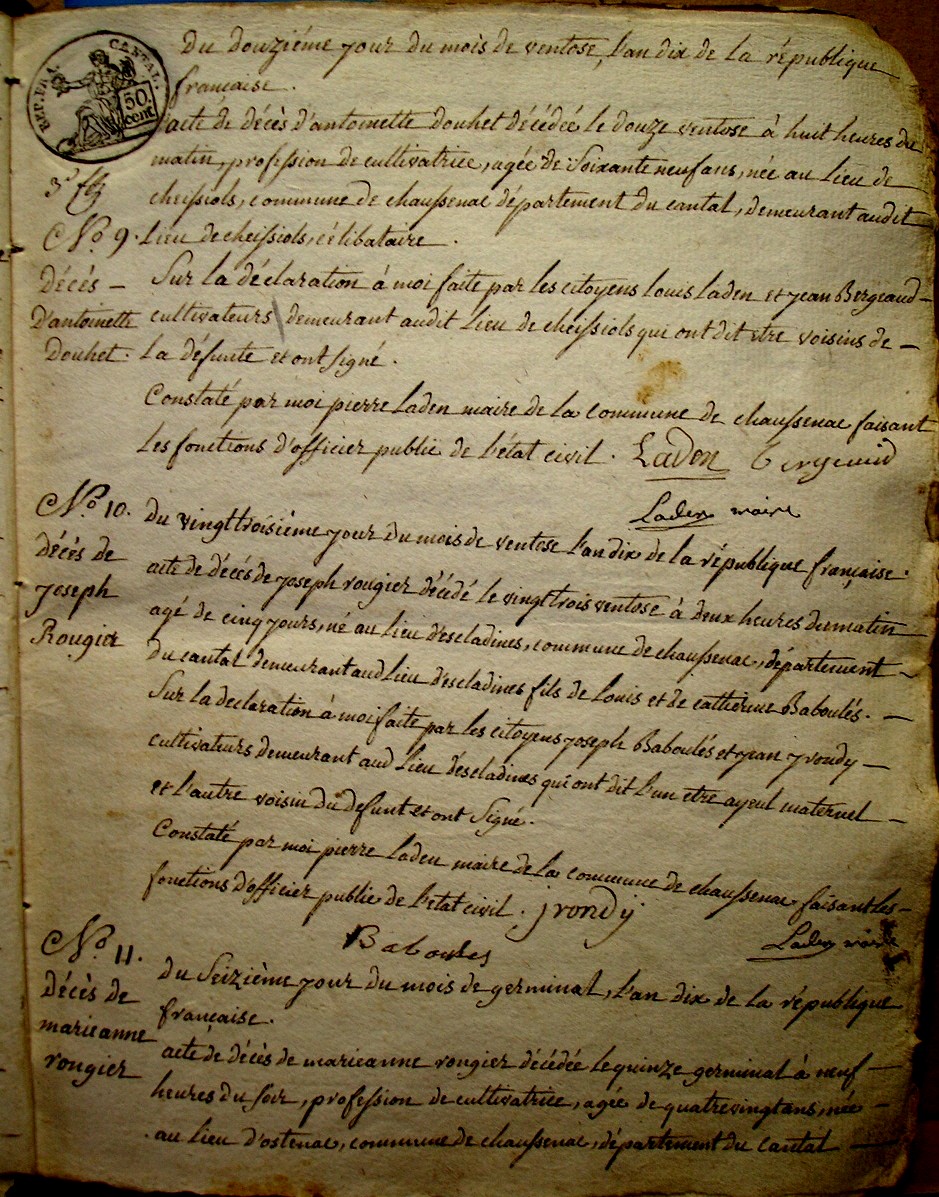 REP. FRA. CANTAL.
50 cent
du douziéme jour du mois de ventose, l'an dix de la république
française.
acte de décès d'antoinette douhet décédée le douze ventose à huit heures du
matin, profession de cultivatrice, agée de soixante neuf ans, née au lieu de
cheissiols, commune de chaussenac département du cantal, demeurant audit
N.o 9. lieu de cheissiols, célibataire.
Décés —
D'antoinette
Douhet.
Sur la déclaration à moi faite par les citoyens louis laden et jean Bergeaud —
cultivateurs demeurant audit lieu de cheissiols qui ont dit etre voisins de —
la défunte et ont signé.
Constaté par moi pierre laden maire de la commune de chaussenac faisant
les fonctions d'officier public de l'état civil. Laden Bergeaud
Laden maire
N.o 10.
décès de
joseph
Rougier
du vingt troisième jour du mois de ventose l'an dix de la république française.
acte de décés de joseph rougier décédé le vingt trois ventose à deux heures du matin
agé de cinq jours, né au lieu d'escladines, commune de chaussenac, département —
du cantal demeurant aud lieu d'escladines fils de louis et de catherine Baboulés. —
Sur la declaration à moi faite par les citoyens joseph Baboulés et jean jrondy —
cultivateurs demeurant aud lieu d'escladines qui ont dit l'un etre ayeul maternel —
et l'autre voisin du defunt et ont signé.
Constaté par moi pierre laden maire de la commune de chaussenac faisant les —
fonctions d'officier public de l'état civil. jrondy
Baboules
Laden maire
N.o 11.
décès de
marieanne
rougier
du seizième jour du mois de germinal, l'an dix de la république
française.
acte de décès de marieanne rougier décédée le quinze germinal à neuf —
heures du soir, profession de cultivatrice, agée de quatrevingt ans, née —
au lieu d'ostenac, commune de chaussenac, département du cantal —